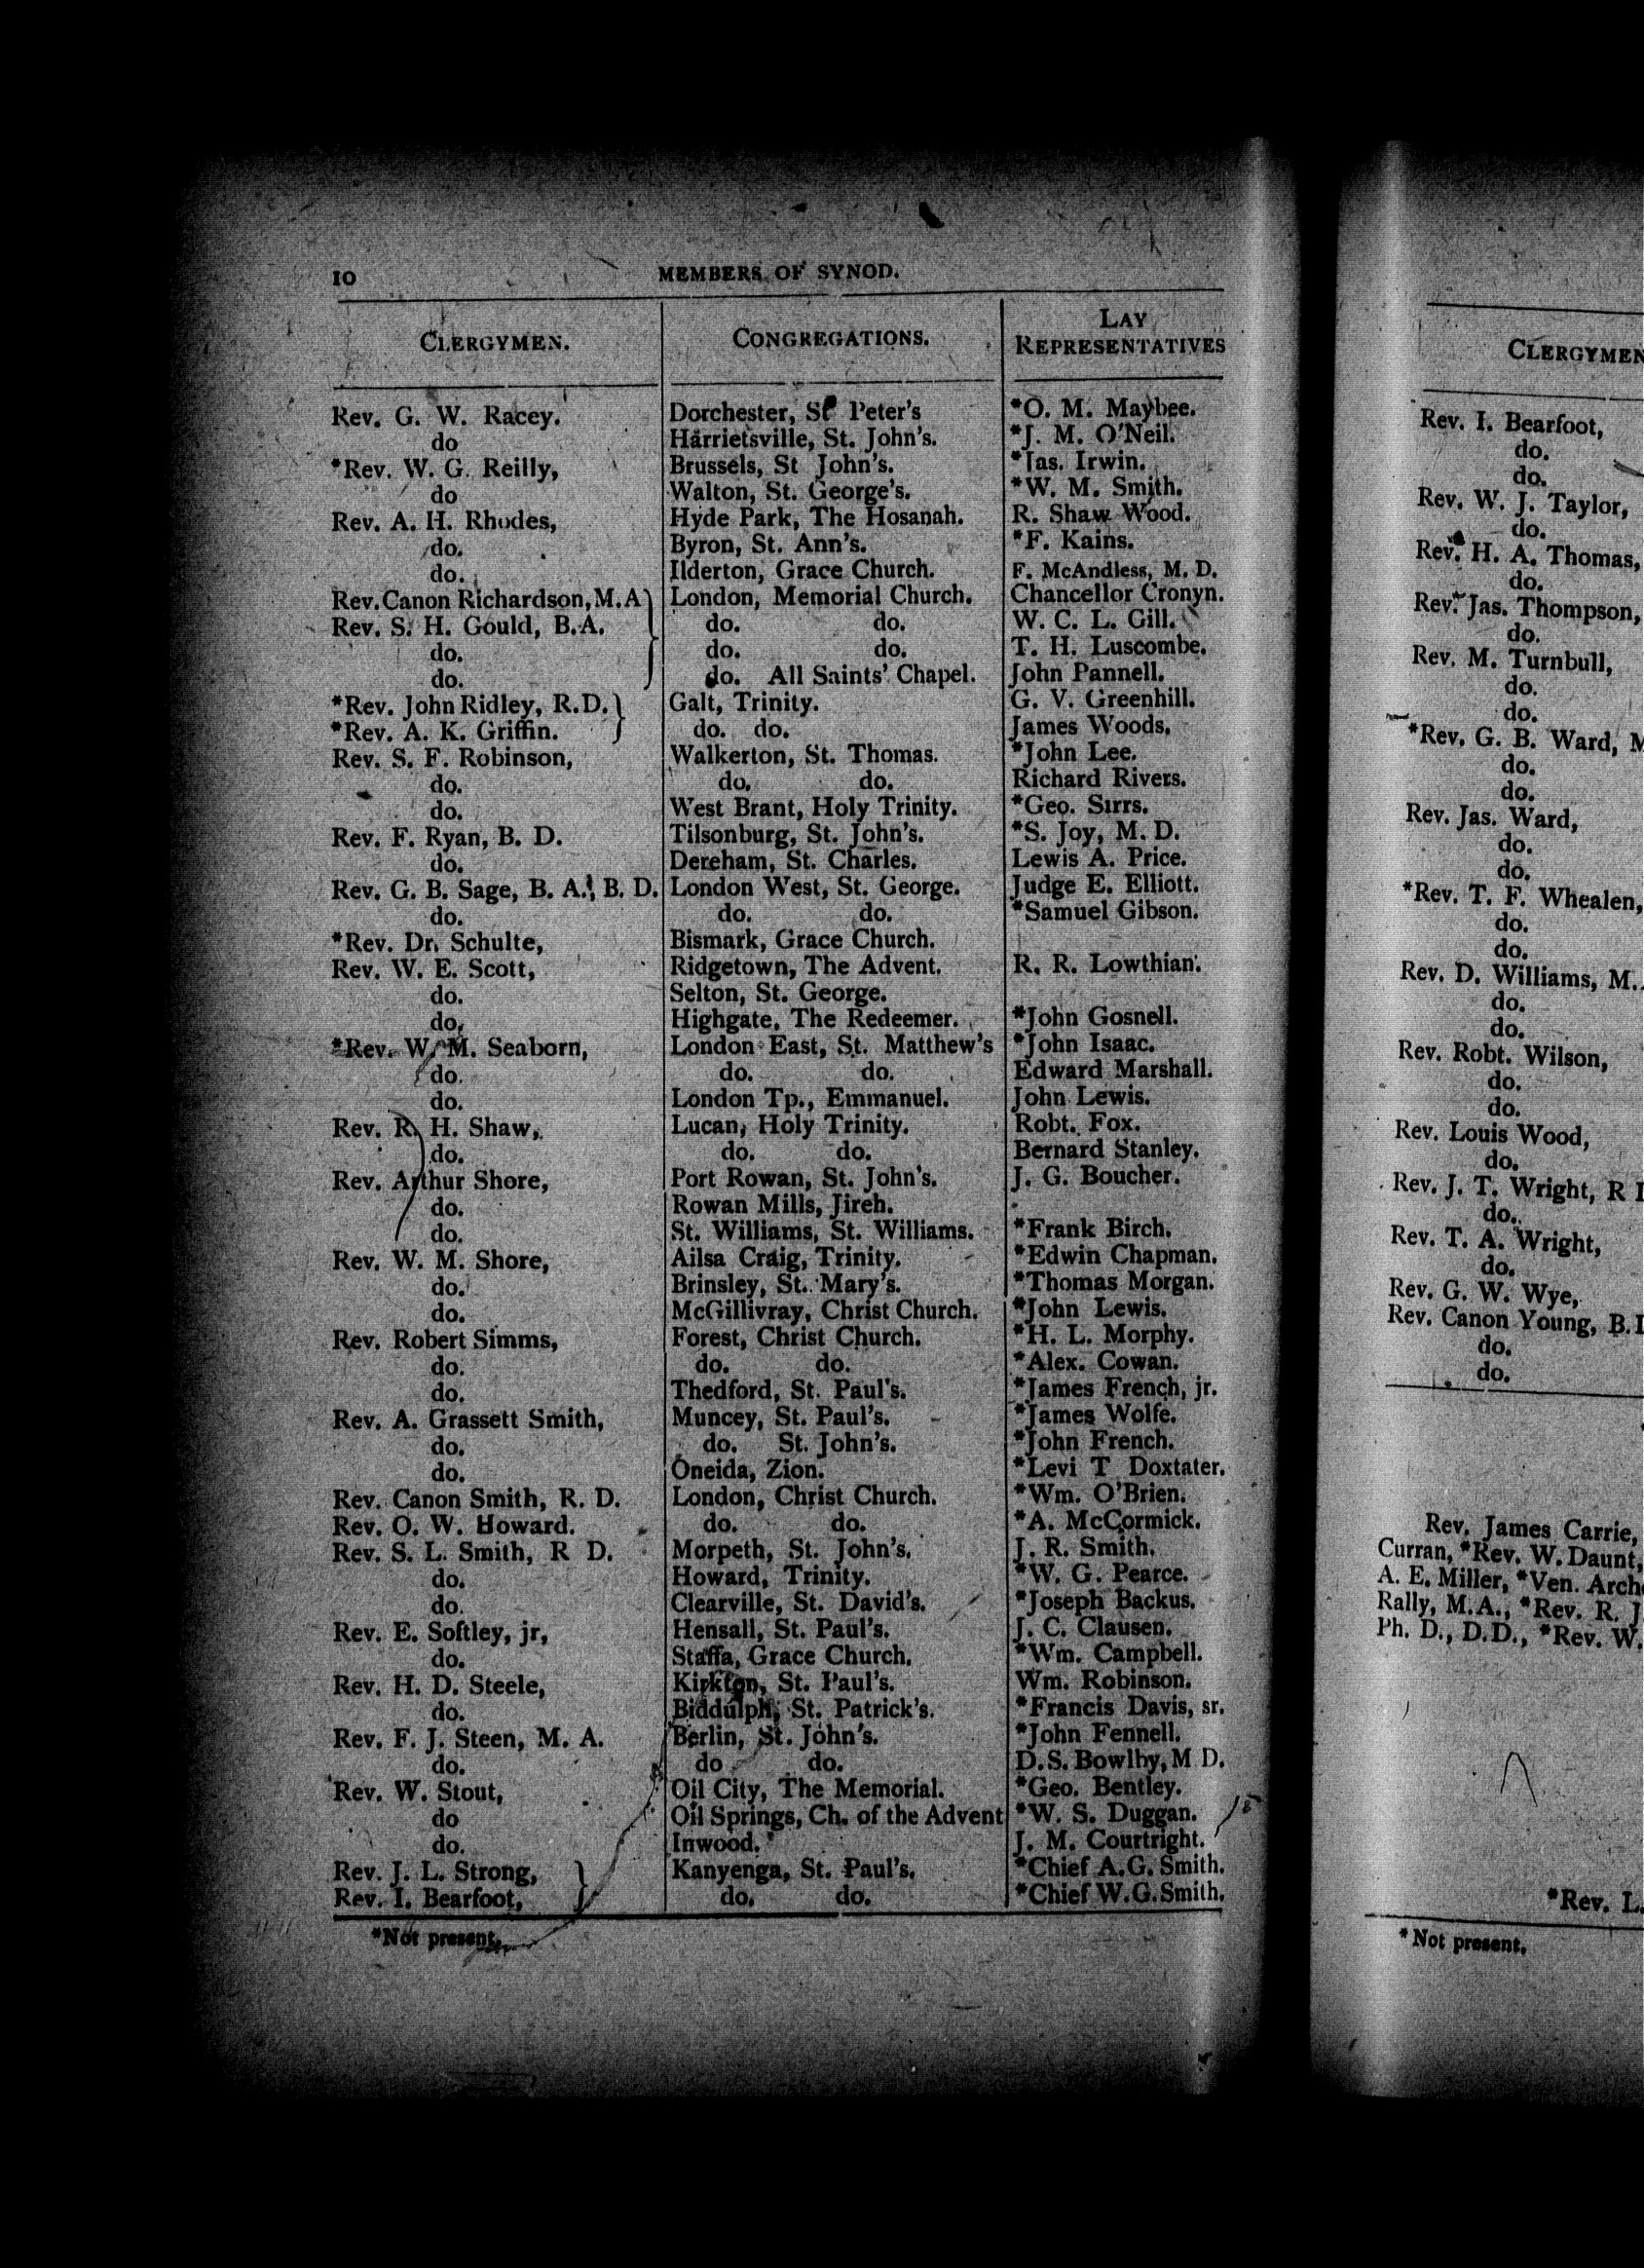 10 MEMBERS OF SYNOD.
CLERGYMEN. CONGREGATIONS. LAY REPRESENTATIVES
Rev. G. W. Racey. Dorchester, St Peter's *O. M. Maybee.
do Harrietsville, St. John's. *J. M. O'Neil.
*Rev. W. G. Reilly, Brussels, St John's. *Jas. Irwin.
do Walton, St. George's. *W. M. Smith.
Rev. A. H. Rhodes, Hyde Park, The Hosanah. R. Shaw Wood.
do. Byron, St. Ann's. *F. Kains.
do. Ilderton, Grace Church. F. McAndless, M. D.
Rev. Canon Richardson, M.A London, Memorial Church. Chancellor Cronyn.
Rev. S. H. Gould, B.A. do. do. W. C. L. Gill.
do. do. do. T. H. Luscombe.
do. do. All Saints' Chapel. John Pannell.
*Rev. John Ridley, R.D. Galt, Trinity. G. V. Greenhill.
*Rev. A. K. Griffin. do. do. James Woods.
Rev. S. F. Robinson, Walkerton, St. Thomas. *John Lee.
do. do. do. Richard Rivers.
do. West Brant, Holy Trinity. *Geo. Sirrs.
Rev. F. Ryan, B. D. Tilsonburg, St. John's. *S. Joy, M. D.
do. Dereham, St. Charles. Lewis A. Price.
Rev. G. B. Sage, B. A., B. D. London West, St. George. Judge E. Elliott.
do. do. do. *Samuel Gibson.
*Rev. Dr. Schulte, Bismark, Grace Church.
Rev. W. E. Scott, Ridgetown, The Advent. R. R. Lowthian.
do. Selton, St. George.
do. Highgate, The Redeemer. *John Gosnell.
*Rev. W. M. Seaborn, London East, St. Matthew's *John Isaac.
do. do. do. Edward Marshall.
do. London Tp., Emmanuel. John Lewis.
Rev. R. H. Shaw, Lucan, Holy Trinity. Robt. Fox.
do. do. do. Bernard Stanley.
Rev. Arthur Shore, Port Rowan, St. John's. J. G. Boucher.
do. Rowan Mills, Jireh.
do. St. Williams, St. Williams. *Frank Birch.
Rev. W. M. Shore, Ailsa Craig, Trinity. *Edwin Chapman.
do. Brinsley, St. Mary's. *Thomas Morgan.
do. McGillivray, Christ Church. *John Lewis.
Rev. Robert Simms, Forest, Christ Church. *H. L. Morphy.
do. do. do. *Alex. Cowan.
do. Thedford, St. Paul's. *James French, jr.
Rev. A. Grassett Smith, Muncey, St. Paul's. *James Wolfe.
do. do. St. John's. *John French.
do. Oneida, Zion. *Levi T Doxtater.
Rev. Canon Smith, R. D. London, Christ Church. *Wm. O'Brien.
Rev. O. W. Howard. do. do. *A. McCormick.
Rev. S. L. Smith, R D. Morpeth, St. John's. J. R. Smith.
do. Howard, Trinity. *W. G. Pearce.
do. Clearville, St. David's. *Joseph Backus.
Rev. E. Softley, jr, Hensall, St. Paul's. J. C. Clausen.
do. Staffa, Grace Church. *Wm. Campbell.
Rev. H. D. Steele, Kirkton, St. Paul's. Wm. Robinson.
do. Biddulph, St. Patrick's. *Francis Davis, sr.
Rev. F. J. Steen, M. A. Berlin, St. John's. *John Fennell.
do. do do. D.S. Bowlby, M D.
Rev. W. Stout, Oil City, The Memorial. *Geo. Bentley.
do Oil Springs, Ch. of the Advent *W. S. Duggan.
do. Inwood. J. M. Courtright.
Rev. J. L. Strong, Kanyenga, St. Paul's. *Chief A.G. Smith.
Rev. I. Bearfoot, do. do. *Chief W.G. Smith.
*Not present.
CLERGYMEN
Rev. I. Bearfoot,
do.
do.
Rev. W. J. Taylor,
do.
Rev. H. A. Thomas,
do.
Rev. Jas. Thompson,
do.
Rev. M. Turnbull,
do.
do.
*Rev. G. B. Ward, M
do.
do.
Rev. Jas. Ward,
do.
do.
*Rev. T. F. Whealen,
do.
do.
Rev. D. Williams, M.
do.
do.
Rev. Robt. Wilson,
do.
do.
Rev. Louis Wood,
do.
Rev. J. T. Wright, R
do.
Rev. T. A. Wright,
do.
Rev. G. W. Wye,
Rev. Canon Young, B.
do.
do.
Rev. James Carrie,
Curran, *Rev. W. Daunt,
A. E. Miller, *Ven. Arch
Rally, M.A., *Rev. R. J
Ph. D., D.D., *Rev. W.
*Rev. L.
*Not present.